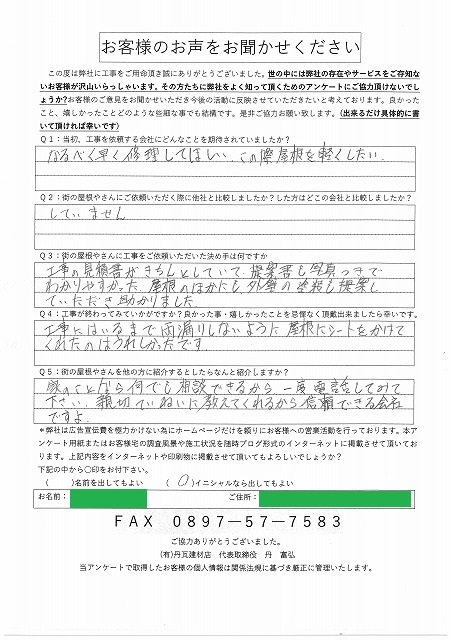 お客様のお声をお聞かせください
この度は弊社に工事をご用命頂き誠にありがとうございました。世の中には弊社の存在やサービスをご存知な
いお客様が沢山いらっしゃいます。その方たちに弊社をよく知って頂くためのアンケートにご協力頂けないでし
ょうか?お客様のご意見をお聞かせいただき今後の活動に反映させていただきたいと考えております。良かった
こと、嬉しかったことどのような些細な事でも結構です。是非ご協力お願い致します。(出来るだけ具体的に書
いて頂ければ幸いです)
Q1:当初、工事を依頼する会社にどんなことを期待されていましたか?
なるべく早く修理してほしい、この際屋根を軽くしたい。
Q2:街の屋根やさんにご依頼いただく際に他社と比較しましたか?した方はどこの会社と比較しましたか?
していません
Q3:街の屋根やさんに工事をご依頼いただいた決め手は何ですか
工事の見積書がきちんとしていて、提案書も写真つきで
わかりやすかった。屋根のほかにも外壁の塗装も提案し
ていただき助かりました。
Q4:工事が終わってみていかがですか?良かった事・嬉しかったことを忌憚なく頂戴出来ましたら幸いです。
工事にはいるまで雨漏りしないように屋根にシートをかけて
くれたのはうれしかったです。
Q5:街の屋根やさんを他の方に紹介するとしたらなんと紹介しますか?
家のことなら何でも相談できるから一度電話してみて
下さい。親切ていねいに教えてくれるから信頼できる会社
ですよ。
*弊社は広告宣伝費を極力かけない為にホームページだけを頼りにお客様への営業活動を行っております。本ア
ンケート用紙またはお客様宅の調査風景や施工状況を随時ブログ形式のインターネットに掲載させて頂いてお
ります。上記内容をインターネットや印刷物に掲載させて頂いてもよろしいでしょうか?
下記の中から○印をお付下さい。
( )名前を出してもよい (○)イニシャルなら出してもよい
お名前: ご住所:
FAX 0897-57-7583
ご協力ありがとうございました。
(有)丹瓦建材店 代表取締役 丹 富弘
当アンケートで取得したお客様の個人情報は関係法規に基づき厳正に管理いたします。